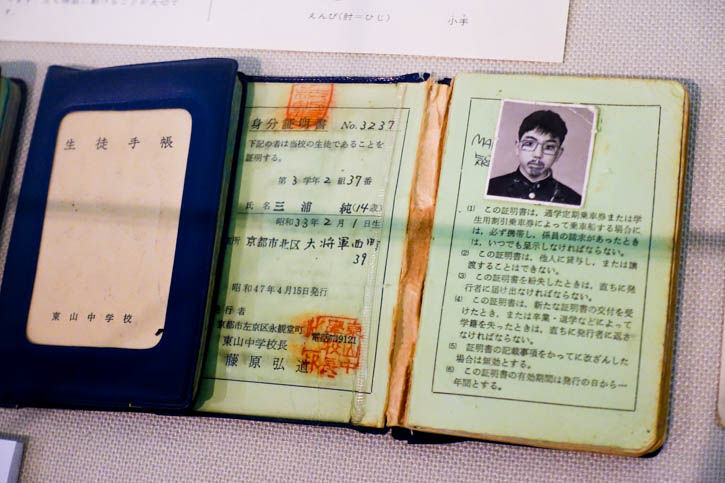 えんぴ(肘＝ひじ)
小手
す。
生徒手帳
東山中学校
身分証明書 No. 3237
下記の者は当校の生徒であることを
証明する。
第3学年2組37番
氏名 三浦 純(14歳)
昭和33年2月1日生
所 京都市北区大将軍西町
39
昭和47年4月15日発行
発行者
京都市左京区永観堂町
東山中学校長
藤原弘道
MA
(1) この証明書は、通学定期乗車券または学
生用割引乗車券によって乗車船する場合に
は、必ず携帯し、係員の請求があったとき
は、いつでも呈示しなければならない。
(2) この証明書は、他人に貸与し、または譲
渡することはできない。
(3) この証明書を紛失したときは、直ちに発
行者に届け出なければならない。
(4) この証明書は、新たな証明書の交付を受
けたとき、または卒業・退学などによって
学籍を失ったときは、直ちに発行者に返さ
なければならない。
(5) 証明書の記載事項をかってに改ざんした
場合は無効とする。
(6) この証明書の有効期間は発行の日から一
年間とする。